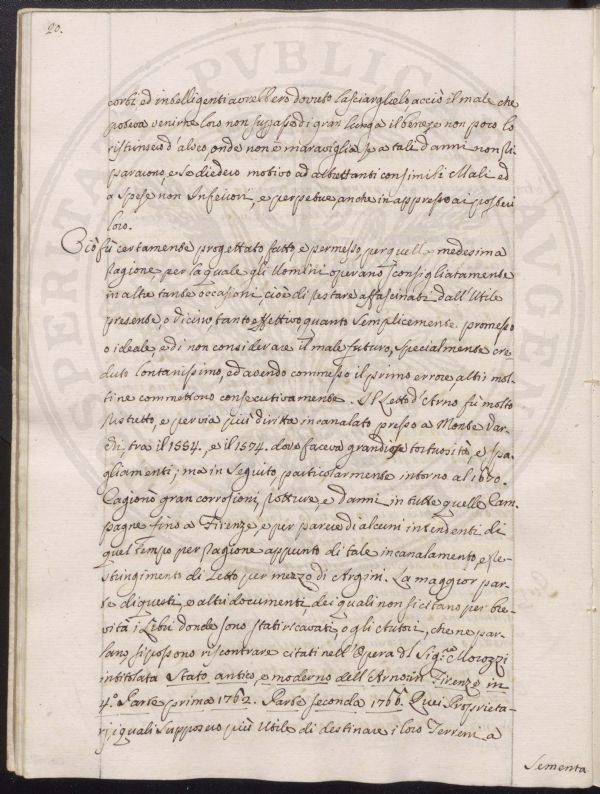 20.
corbi, ed intelligenti avrebbero dovuto lasciarglielo acciò il male che
poteva venirne loro non suppassi di gran lunga il bene, e non poco lo
ristrinsero d'alveo, onde non è maraviglia se a tale danni non si
pararono, e se diedero motivo ad altrettanti consimili Mali ed
a spese non Inferiori, e perpetue, anche in appresso ai posteri
loro.
Ciò fù certamente progettato fatto e permesso per quella medesima
ragione per la quale gli Uomini operano sconsigliatamente
in altre tante occasioni, cioè di restare affascinati dall'Utile
presente, o vicino tanto effettivo quanto semplicemente promesso
o ideale, e di non considerare il male futuro, specialmente cre-
duto lontanissimo, ed avendo commesso il primo errore altri mol-
ti ne commettono consecutivamente. Il Letto d'Arno fù molto
ristretto, e per via più diritta incanalato presso a Monte Var-
chi, tra il 1554. e il 1574. dove faceva grandiose tortuosità, e spa-
gliamenti; ma in seguito, particolarmente intorno al 1670.
Cagionò gran corrosioni, rotture, e danni in tutte quelle Cam-
pagne fino a Firenze, e per parere di alcuni intendenti di
quel tempo per ragione appunto di tale incanalamento, e re-
stringimento di Letto per mezzo di Argini. La maggior par-
te di questi, e altri documenti, dei quali non si citano per bre-
vità i Libri donde sono stati ricavati, o gli Autori, che ne par-
lano, si possono riscontrare citati nell'Opera del Sig.re Morozzi
intitolata Stato antico, e moderno dell'Arno in Firenze in
4.° Parte prima 1762. Parte seconda 1766. Quei Proprieta-
rj, i quali supposero più Utile di destinare i loro Terreni a
Sementa
PERITAT PVBLICAE AVGEN